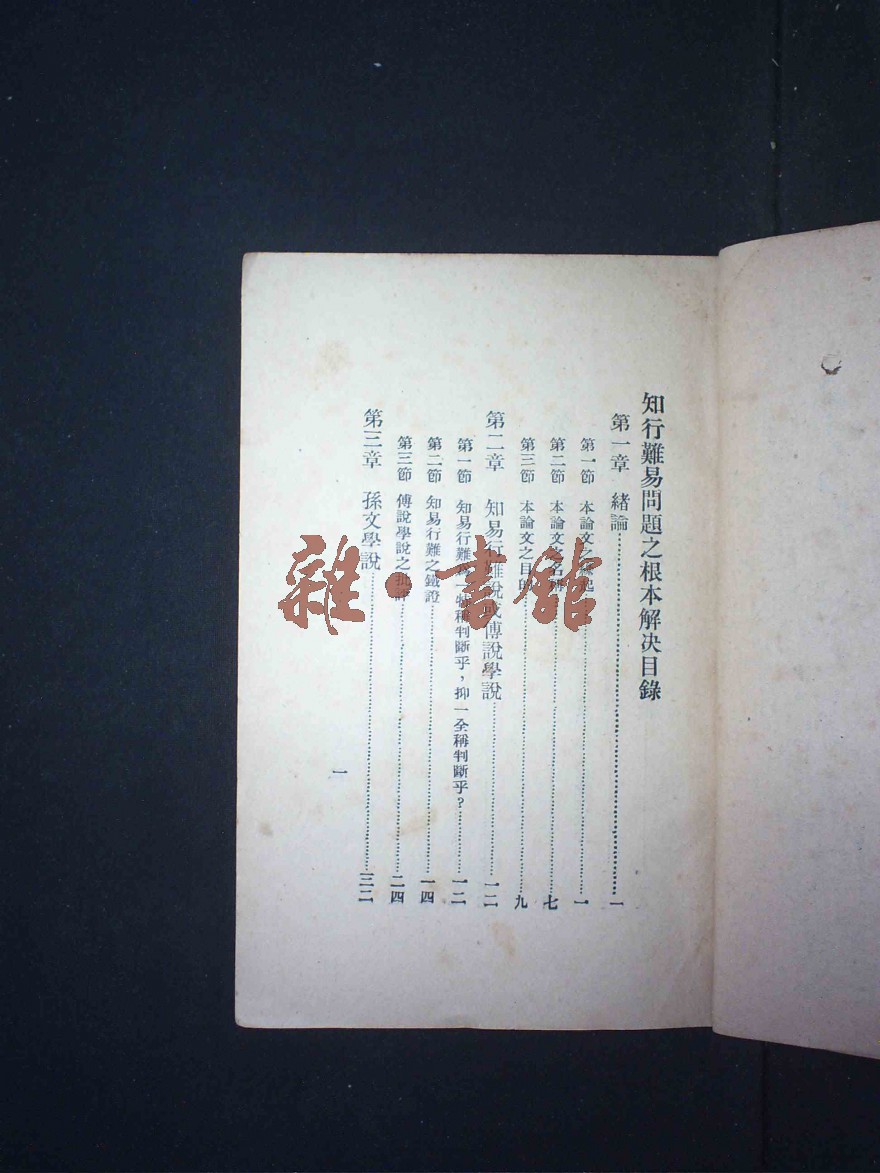 知行難易問題之根本解決目錄
第一章 緒論 一
第一節 本論文之起 一
第二節 本論文之名 七
第三節 本論文之目的 九
第二章 知易行難說或傅說學說 一二
第一節 知易行難為一特稱判斷乎，抑一全稱判斷乎？ 一二
第二節 知易行難之鐵證 一四
第三節 傅說學說之批評 二四
第三章 孫文學說 三二
一
雜·書館